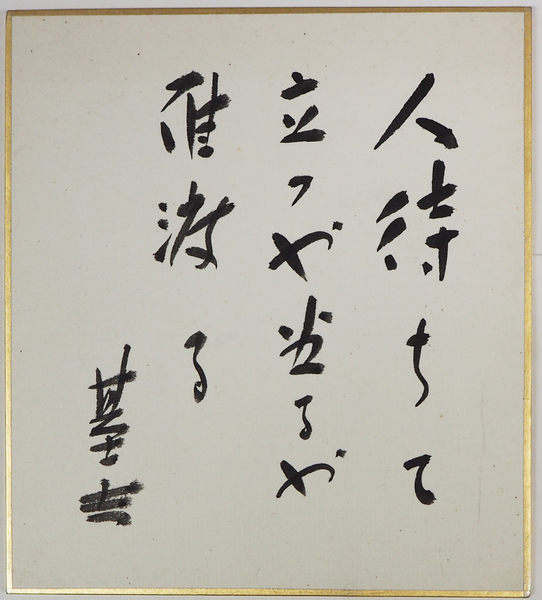 人待ちて
立つや坐るや
雁渡る
基吉